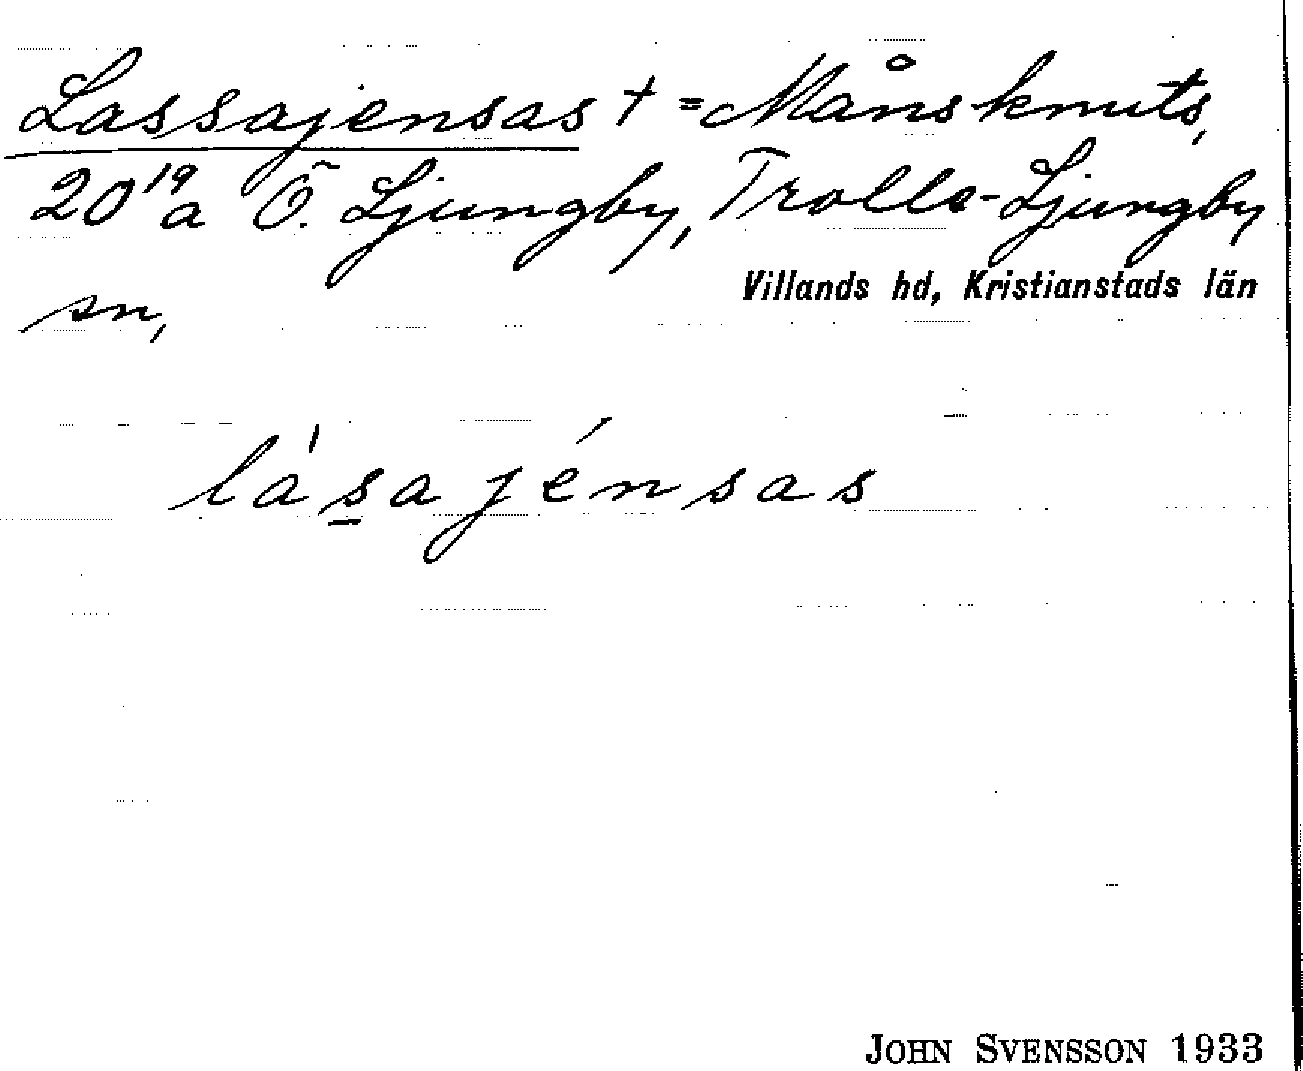 Lassajensas † = Månsknuts,
20¹⁹a Ö. Ljungby, Trolle-Ljungby
sn,
Villands hd, Kristianstads län
làs̲ajénsas
JOHN SVENSSON 1933